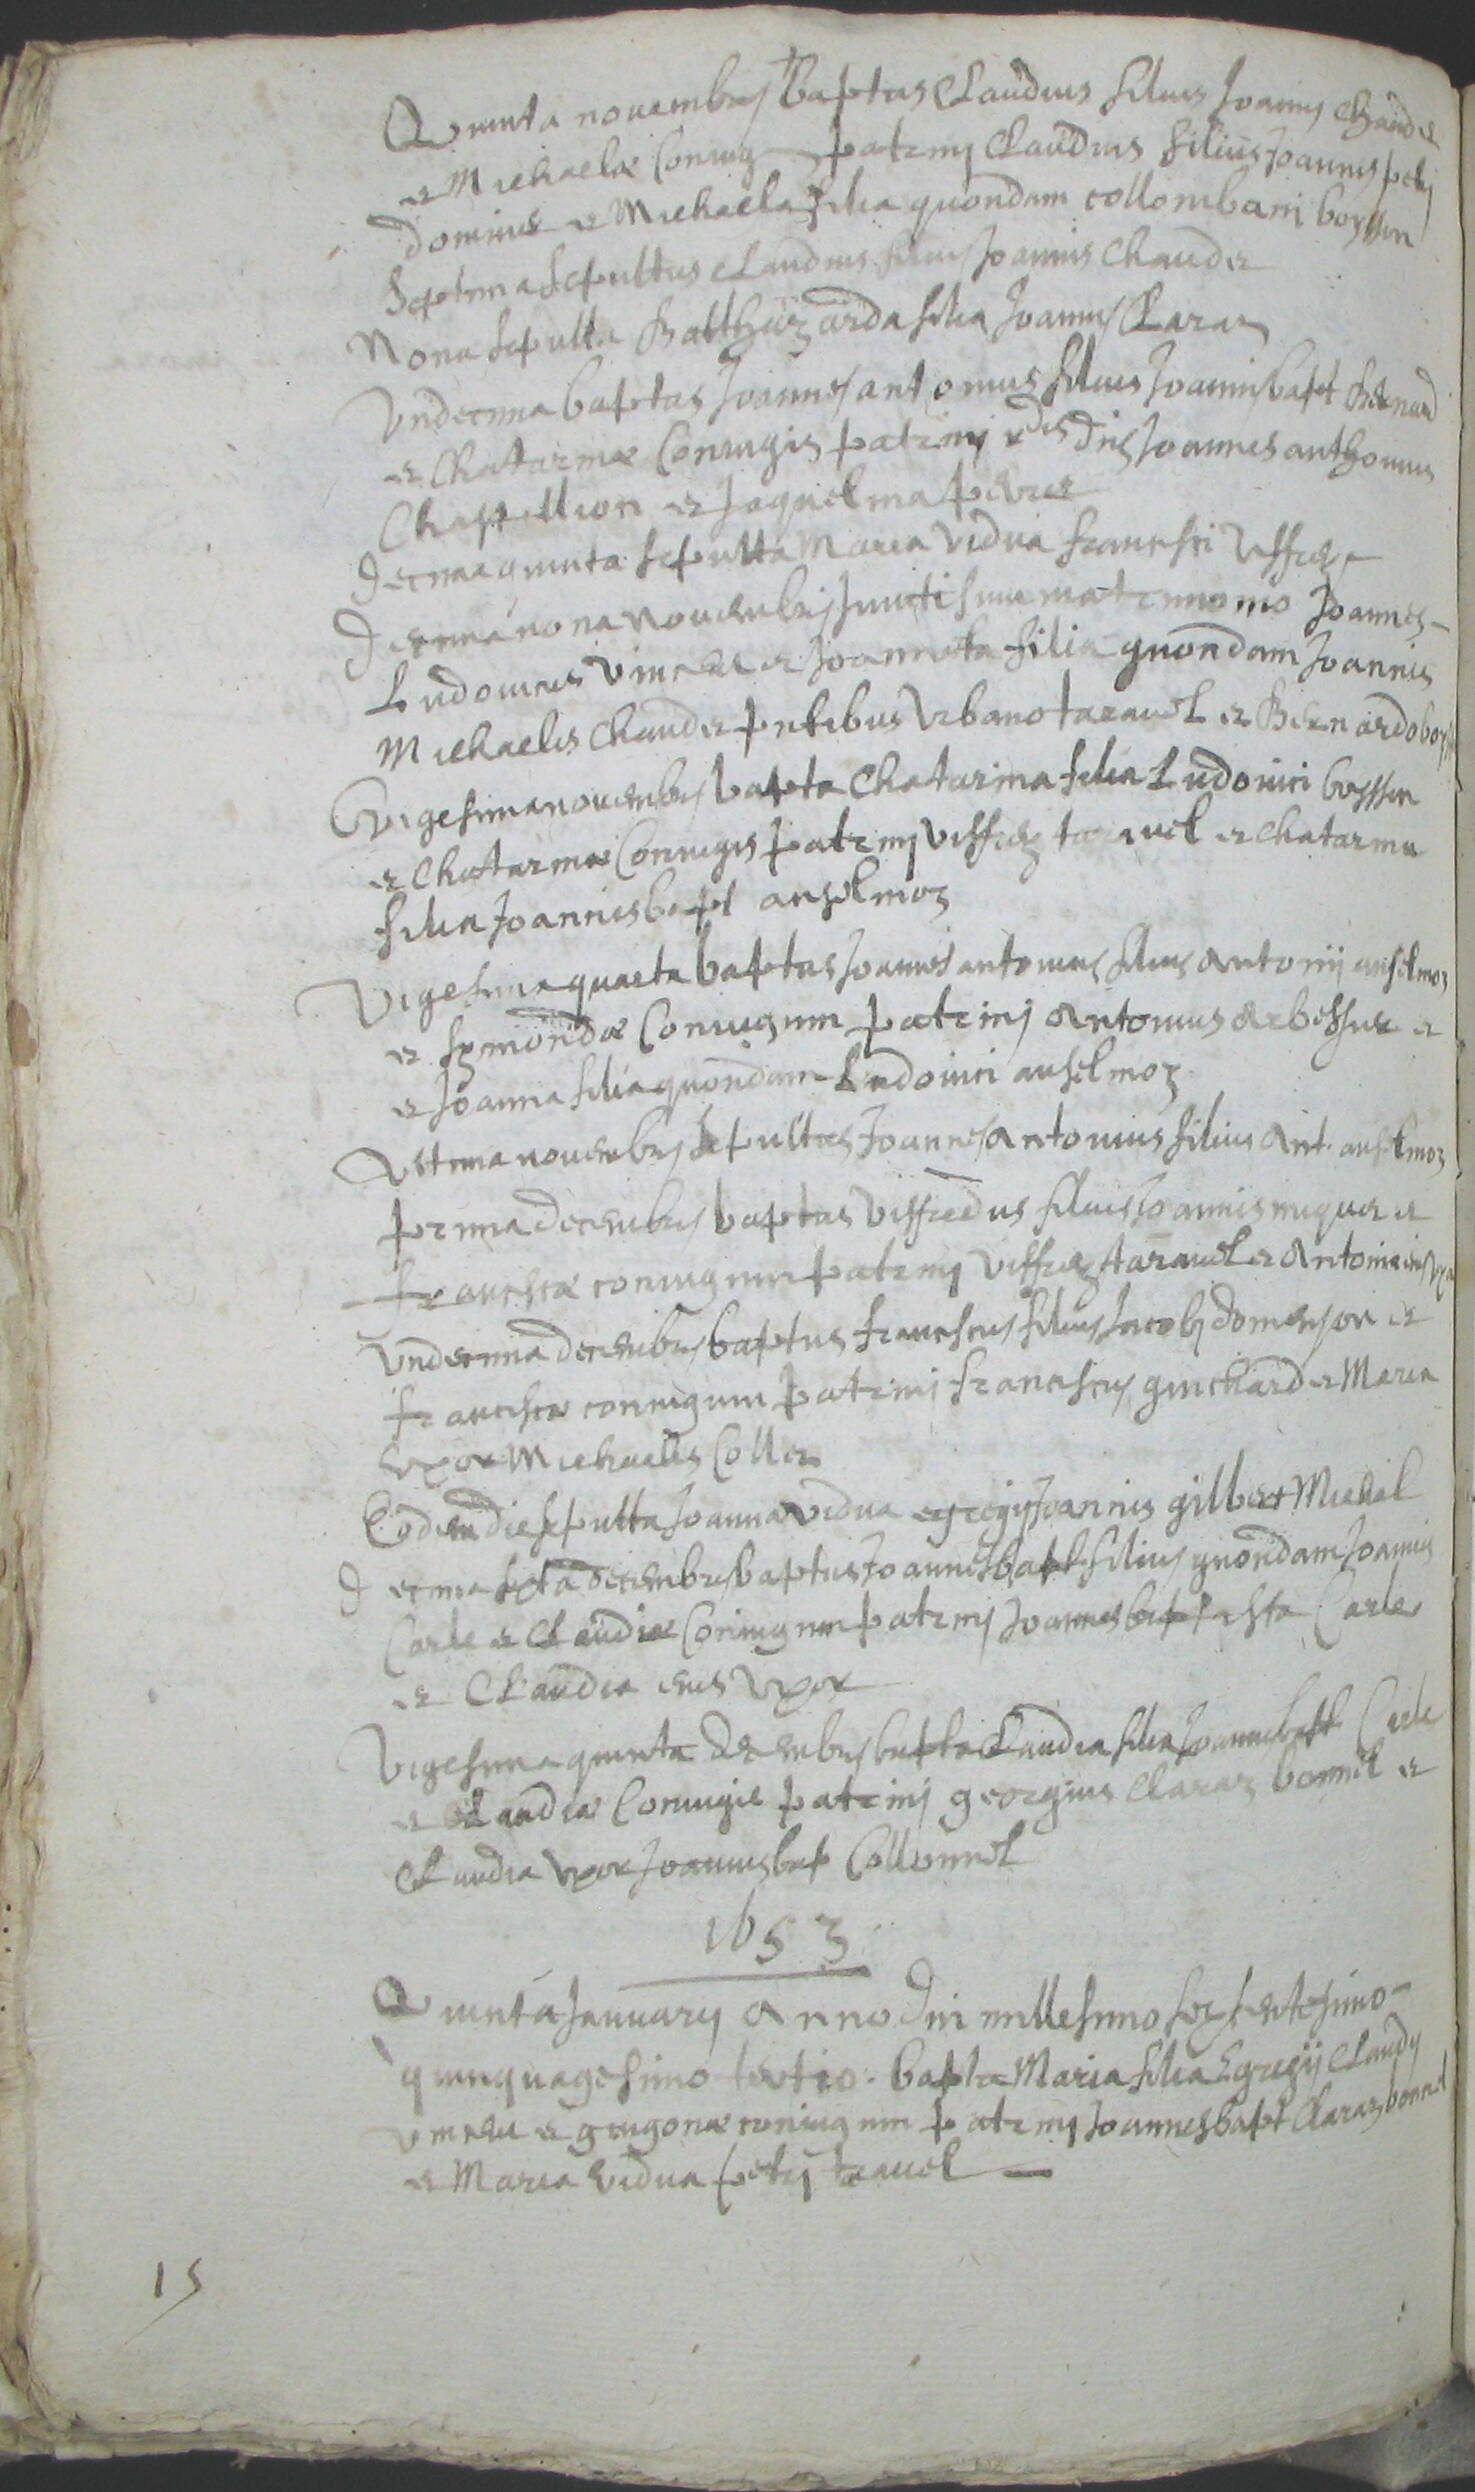 Quinta novembris baptus Claudius filius Joannis Chaudet
et Michaelæ Coniug patrinj Claudius filius Joannis petrj
dominet et Michaela filia quondam collombani boysson
Septima sepultus Claudius filius Joannis Chaudet
Nona sepulta Balthazarda filia Joannis Claraz
Undecima baptus Joannes antonius filius Joannis bapt Bernard
et Chatarinæ Coniugis patrinj rdus dns Joannes anthonius
Chappellion et Jaquelina
Decima quinta sepulta Maria vidua francisci Uffrey
Decima nona novembris Juncti sunt matrimonio Joannes
Ludovicus Vincent et Joanneta filia quondam Joannis
Michaelis Chaudet pntibus Urbano taravel et Bernardo boysson
Vigesima novembris bapta Chatarina filia Ludovici boysson
et Chatarinæ Coniugis patrinj Uffrey taravel et Chatarina
filia Joannis bapt anselmoz
Vigesima quarta baptus Joannes antonius filius Antonij anselmoz
et symondæ Coniugum patrinj Antonius et
et Joanna filia quondam Ludovici anselmoz
Ultima novembris sepultus Joannes Antonius filius Ant. anselmoz
prima decembris baptus Uffredus filius Joannis et
franciscæ coniugum patrinj Uffrey taravel et Antonia eius uxor
Undecima decembris baptus franciscus filius Jacobj et
franciscæ coniugum patrinj franciscus guichard et Maria
uxor Michaelis Collet
Eodem die sepulta Joanna vidua egregij Joannis gilbert Michel
Decima sexta decembris baptus Joannes bapt filius quondam Joannis
Carle et Claudiæ Coniugum patrinj Joannes baptista Carle
et Claudia eius uxor
Vigesima quinta decembris bapta Claudia filia Joannis bapt Carle
et Claudiæ Coniugis patrinj georgius Claraz bonnel et
Claudia uxor Joannis bap Collonnel
1653
Quinta Januarij Anno Dni millesimo sexcentesimo
quinquagesimo tertio. bapta Maria filia Egregij Claudij
Vincent et gugonæ coniugum patrinj Joannes bapt Claraz bonnel
et Maria vidua petrj travel
15